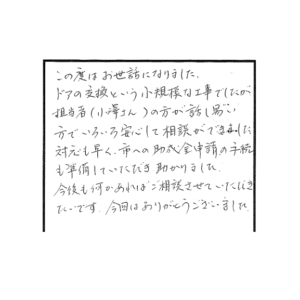 この度はお世話になりました。
ドアの交換という小規模な工事でしたが
担当者(小澤さん)の方が話し易い
方でいろいろ安心して相談ができました
対応も早く、市への助成金申請の手続
も準備していただき助かりました。
今後も何かあればご相談させていただき
たいです。今回はありがとうございました。